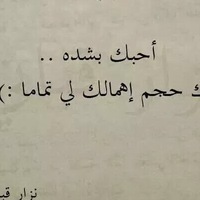 أحبك بشده ..
ك حجم إهمالك لي تماما :)
نزار قب